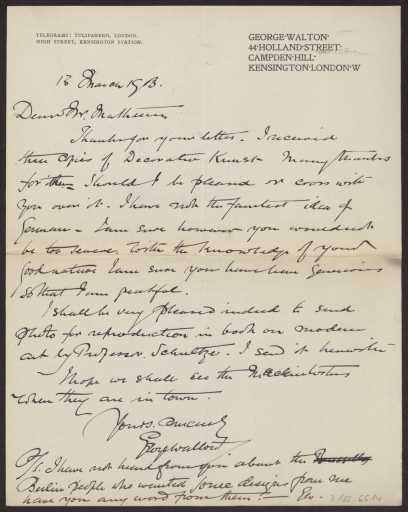 TELEGRAMS: TULIPARDED, LONDON.
HIGH STREET, KENSINGTON STATION.
GEORGE·WALTON·
44·HOLLAND·STREET·
CAMPDEN·HILL·
KENSINGTON·LONDON·W
13 March 1913.
Dear Mr. Mathesius
Thanks for your letter. I received
three copies of Decorative Kunst Many thanks
for them Should I be pleased or cross with
you over it. I have not the faintest idea of
German – I am sure however you would not
be too severe. With the knowledge of your
good nature I am sure you have been generous
so that I am grateful.
I shall be very pleased indeed to send
photo for reproduction in book on modern
art by Professor Schultze. I send it herewith
I hope we shall see the Mackintoshs
when they are in town.
Yours sincerely
George Walton
P/S. I have not heard from you about the
Berlin people who wanted some designs from me
have you any word from them? —